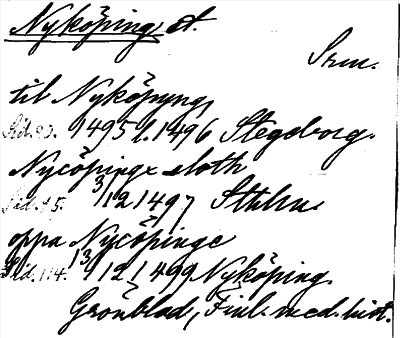 Nyköping st.
Srm.
til Nyköpyng
Sid. 93. 1495 l. 1496 Stegeborg.
Nycöpinge sloth
Sid. 95. 3/12 1497 Sthlm
oppa Nycöpinge
Sid. 114. 13/12 1499 Nyköping.
Grönblad, Finl. med. hist.